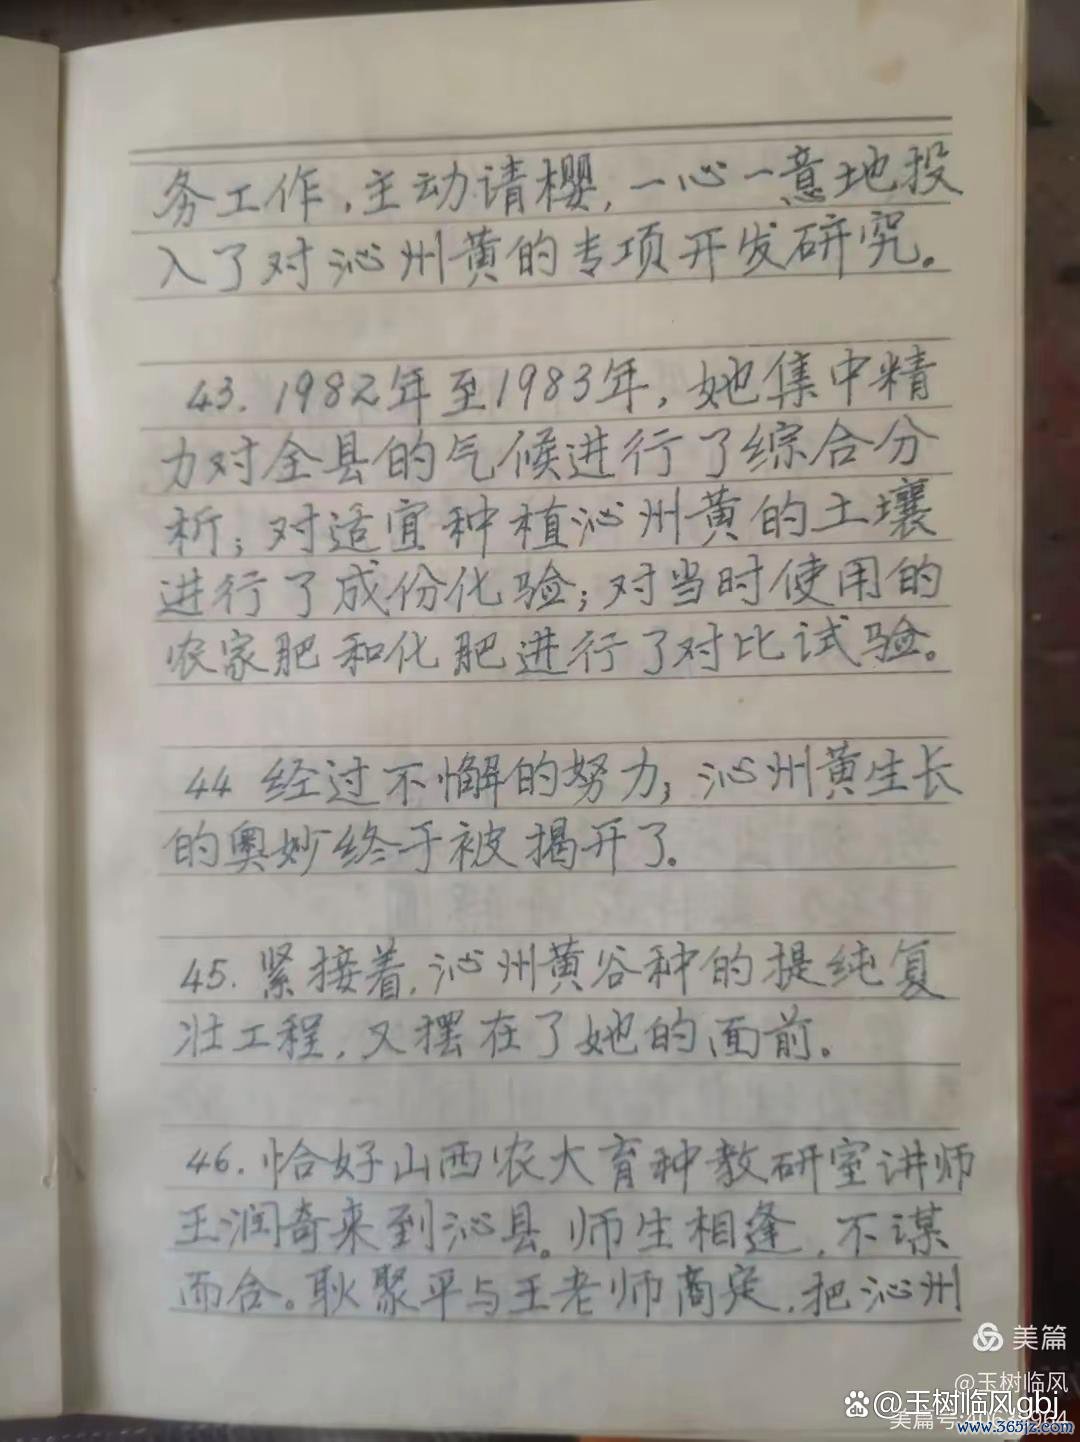 务工作，主动请樱，一心一意地投
入了对沁州黄的专项开发研究。
43. 1982年至1983年，她集中精
力对全县的气候进行了综合分
析；对适宜种植沁州黄的土壤
进行了成份化验；对当时使用的
农家肥和化肥进行了对比试验。
44 经过不懈的努力，沁州黄生长
的奥妙终于被揭开了。
45. 紧接着，沁州黄谷种的提纯复
壮工程，又摆在了她的面前。
46. 恰好山西农大育种教研室讲师
王润奇来到沁县。师生相逢，不谋
而合。耿聚平与王老师商定，把沁州
美篇
@玉树临风
@玉树临风gbj
美篇号
www.365jz.com